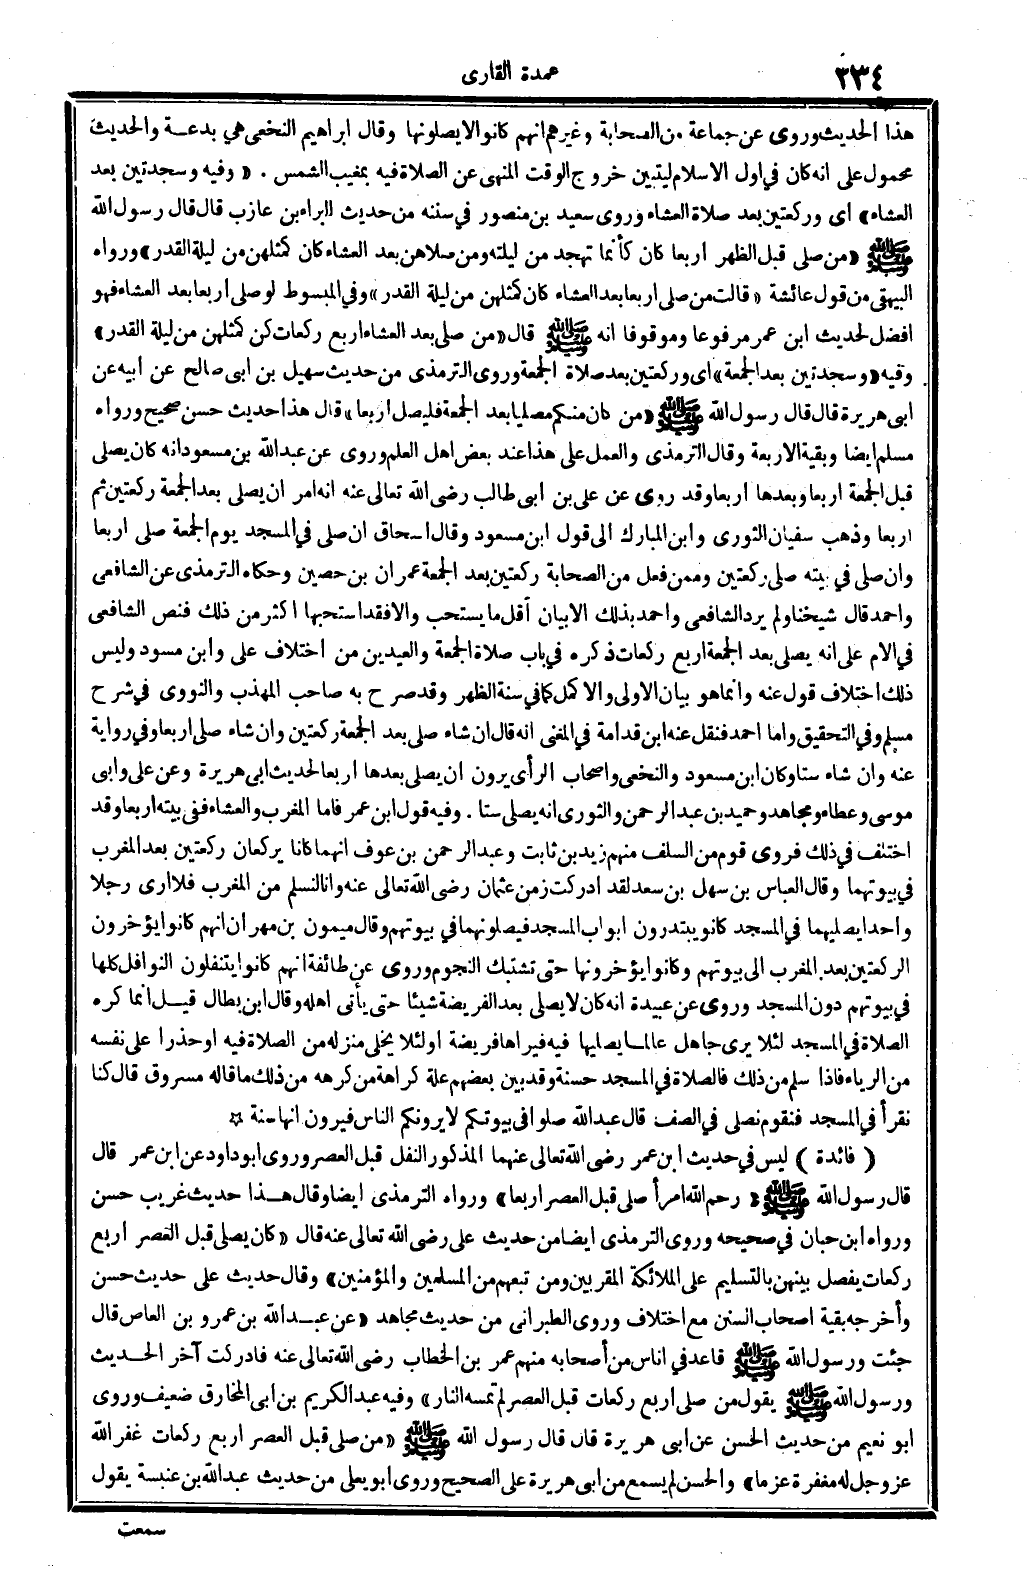 ٢٣٤
عمدة القارى
هذا الحديث وروى عن جماعة من الصحابة وغيرهم انهم كانوا لا يصلونها وقال ابراهيم النخعى هي بدعة والحديث
محمول على انه كان في اول الاسلام ليتبين خروج الوقت المنهى عن الصلاة فيه بمغيب الشمس . « وفيه وسجدتين بعد
العشاء» اى وركعتين بعد صلاة العشاء وروى سعيد بن منصور في سننه من حديث البراء بن عازب قال قال رسول الله
ﷺ «من صلى قبل الظهر اربعا كان كأنما تهجد من ليلته ومن صلاهن بعد العشاء كان كمثلهن من ليلة القدر» ورواه
البيهقى من قول عائشة « قالت من صلى اربعا بعد العشاء كان كمثلهن من ليلة القدر» وفي المبسوط لو صلى اربعا بعد العشاء فهو
افضل لحديث ابن عمر مرفوعا وموقوفا انه ﷺ قال «من صلى بعد العشاء اربع ركعات كن كمثلهن من ليلة القدر»
وفيه «وسجدتين بعد الجمعة» اى وركعتين بعد صلاة الجمعة وروى الترمذى من حديث سهيل بن ابى صالح عن ابيه عن
ابى هريرة قال قال رسول الله ﷺ «من كان منكم مصليا بعد الجمعة فليصل اربعا» قال هذا حديث حسن صحيح ورواه
مسلم ايضا وبقية الاربعة وقال الترمذى والعمل على هذا عند بعض اهل العلم وروى عن عبدالله بن مسعود انه كان يصلى
قبل الجمعة اربعا وبعدها اربعا وقد روى عن على بن ابى طالب رضى الله تعالى عنه انه امر ان يصلى بعد الجمعة ركعتين ثم
اربعا وذهب سفيان الثورى وابن المبارك الى قول ابن مسعود وقال اسحاق ان صلى في المسجد يوم الجمعة صلى اربعا
وان صلى في بيته صلى ركعتين وممن فعل من الصحابة ركعتين بعد الجمعة عمران بن حصين وحكاه الترمذى عن الشافعى
واحمد قال شيخنا ولم يرد الشافعى واحمد بذلك الا بيان أقل ما يستحب والا فقد استحبها اكثر من ذلك فنص الشافعى
في الام على انه يصلى بعد الجمعة اربع ركعات ذكره في باب صلاة الجمعة والعيدين من اختلاف على وابن مسود وليس
ذلك اختلاف قول عنه وانما هو بيان الاولى والا كمل كما في سنة الظهر وقد صرح به صاحب المهذب والنووى في شرح
مسلم وفي التحقيق واما احمد فنقل عنه ابن قدامة في المغنى انه قال ان شاء صلى بعد الجمعة ركعتين وان شاء صلى اربعا وفي رواية
عنه وان شاء ستا وكان ابن مسعود والنخعى واصحاب الرأى يرون ان يصلى بعدها اربعا لحديث ابى هريرة وعن على وابى
موسى وعطاء ومجاهد وحميد بن عبدالرحمن والثورى انه يصلى ستا . وفيه قول ابن عمر فاما المغرب والعشاء ففي بيته اربعا وقد
اختلف في ذلك فروى قوم من السلف منهم زيد بن ثابت وعبدالرحمن بن عوف انهما كانا يركعان ركعتين بعد المغرب
في بيوتهما وقال العباس بن سهل بن سعد لقد ادركت زمن عثمان رضى الله تعالى عنه وانا لنسلم من المغرب فلا ارى رجلا
واحدا يصليهما في المسجد كانو يبتدرون ابواب المسجد فيصلونهما في بيوتهم وقال ميمون بن مهران انهم كانوا يؤخرون
الركعتين بعد المغرب الى بيوتهم وكانوا يؤخرونها حتى تشتبك النجوم وروى عن طائفة انهم كانوا يتنفلون النوافل كلها
في بيوتهم دون المسجد وروى عن عبيدة انه كان لا يصلى بعد الفريضة شيئا حتى يأتى اهله وقال ابن بطال قيل انما كره
الصلاة في المسجد لئلا يرى جاهل عالما يصليها فيه فيراها فريضة اولئلا يخلى منزله من الصلاة فيه او حذرا على نفسه
من الرياء فاذا سلم من ذلك فالصلاة في المسجد حسنة وقد بين بعضهم علة كراهة من كرهه من ذلك ما قاله مسروق قال كنا
نقرأ في المسجد فنقوم نصلى في الصف قال عبدالله صلوا في بيوتكم لا يرونكم الناس فيرون انها سنة ☆
( فائدة ) ليس في حديث ابن عمر رضى الله تعالى عنهما المذكور النفل قبل العصر وروى ابو داود عن ابن عمر قال
قال رسول الله ﷺ « رحم الله امرأ صلى قبل العصر اربعا» ورواه الترمذى ايضا وقال هذا حديث غريب حسن
ورواه ابن حبان في صحيحه وروى الترمذى ايضا من حديث على رضى الله تعالى عنه قال « كان يصلى قبل العصر اربع
ركعات يفصل بينهن بالتسليم على الملائكة المقربين ومن تبعهم من المسلمين والمؤمنين» وقال حديث على حديث حسن
وأخرجه بقية اصحاب السنن مع اختلاف وروى الطبرانى من حديث مجاهد «عن عبدالله بن عمرو بن العاص قال
جئت ورسول الله ﷺ قاعد في اناس من أصحابه منهم عمر بن الخطاب رضى الله تعالى عنه فادركت آخر الحديث
ورسول الله ﷺ يقول من صلى اربع ركعات قبل العصر لم تمسه النار» وفيه عبدالكريم بن ابى المخارق ضعيف وروى
ابو نعيم من حديث الحسن عن ابى هريرة قال قال رسول الله ﷺ «من صلى قبل العصر اربع ركعات غفر الله
عز وجل له مغفرة عزما» والحسن لم يسمع من ابى هريرة على الصحيح وروى ابو يعلى من حديث عبدالله بن عنبسة يقول
سمعت